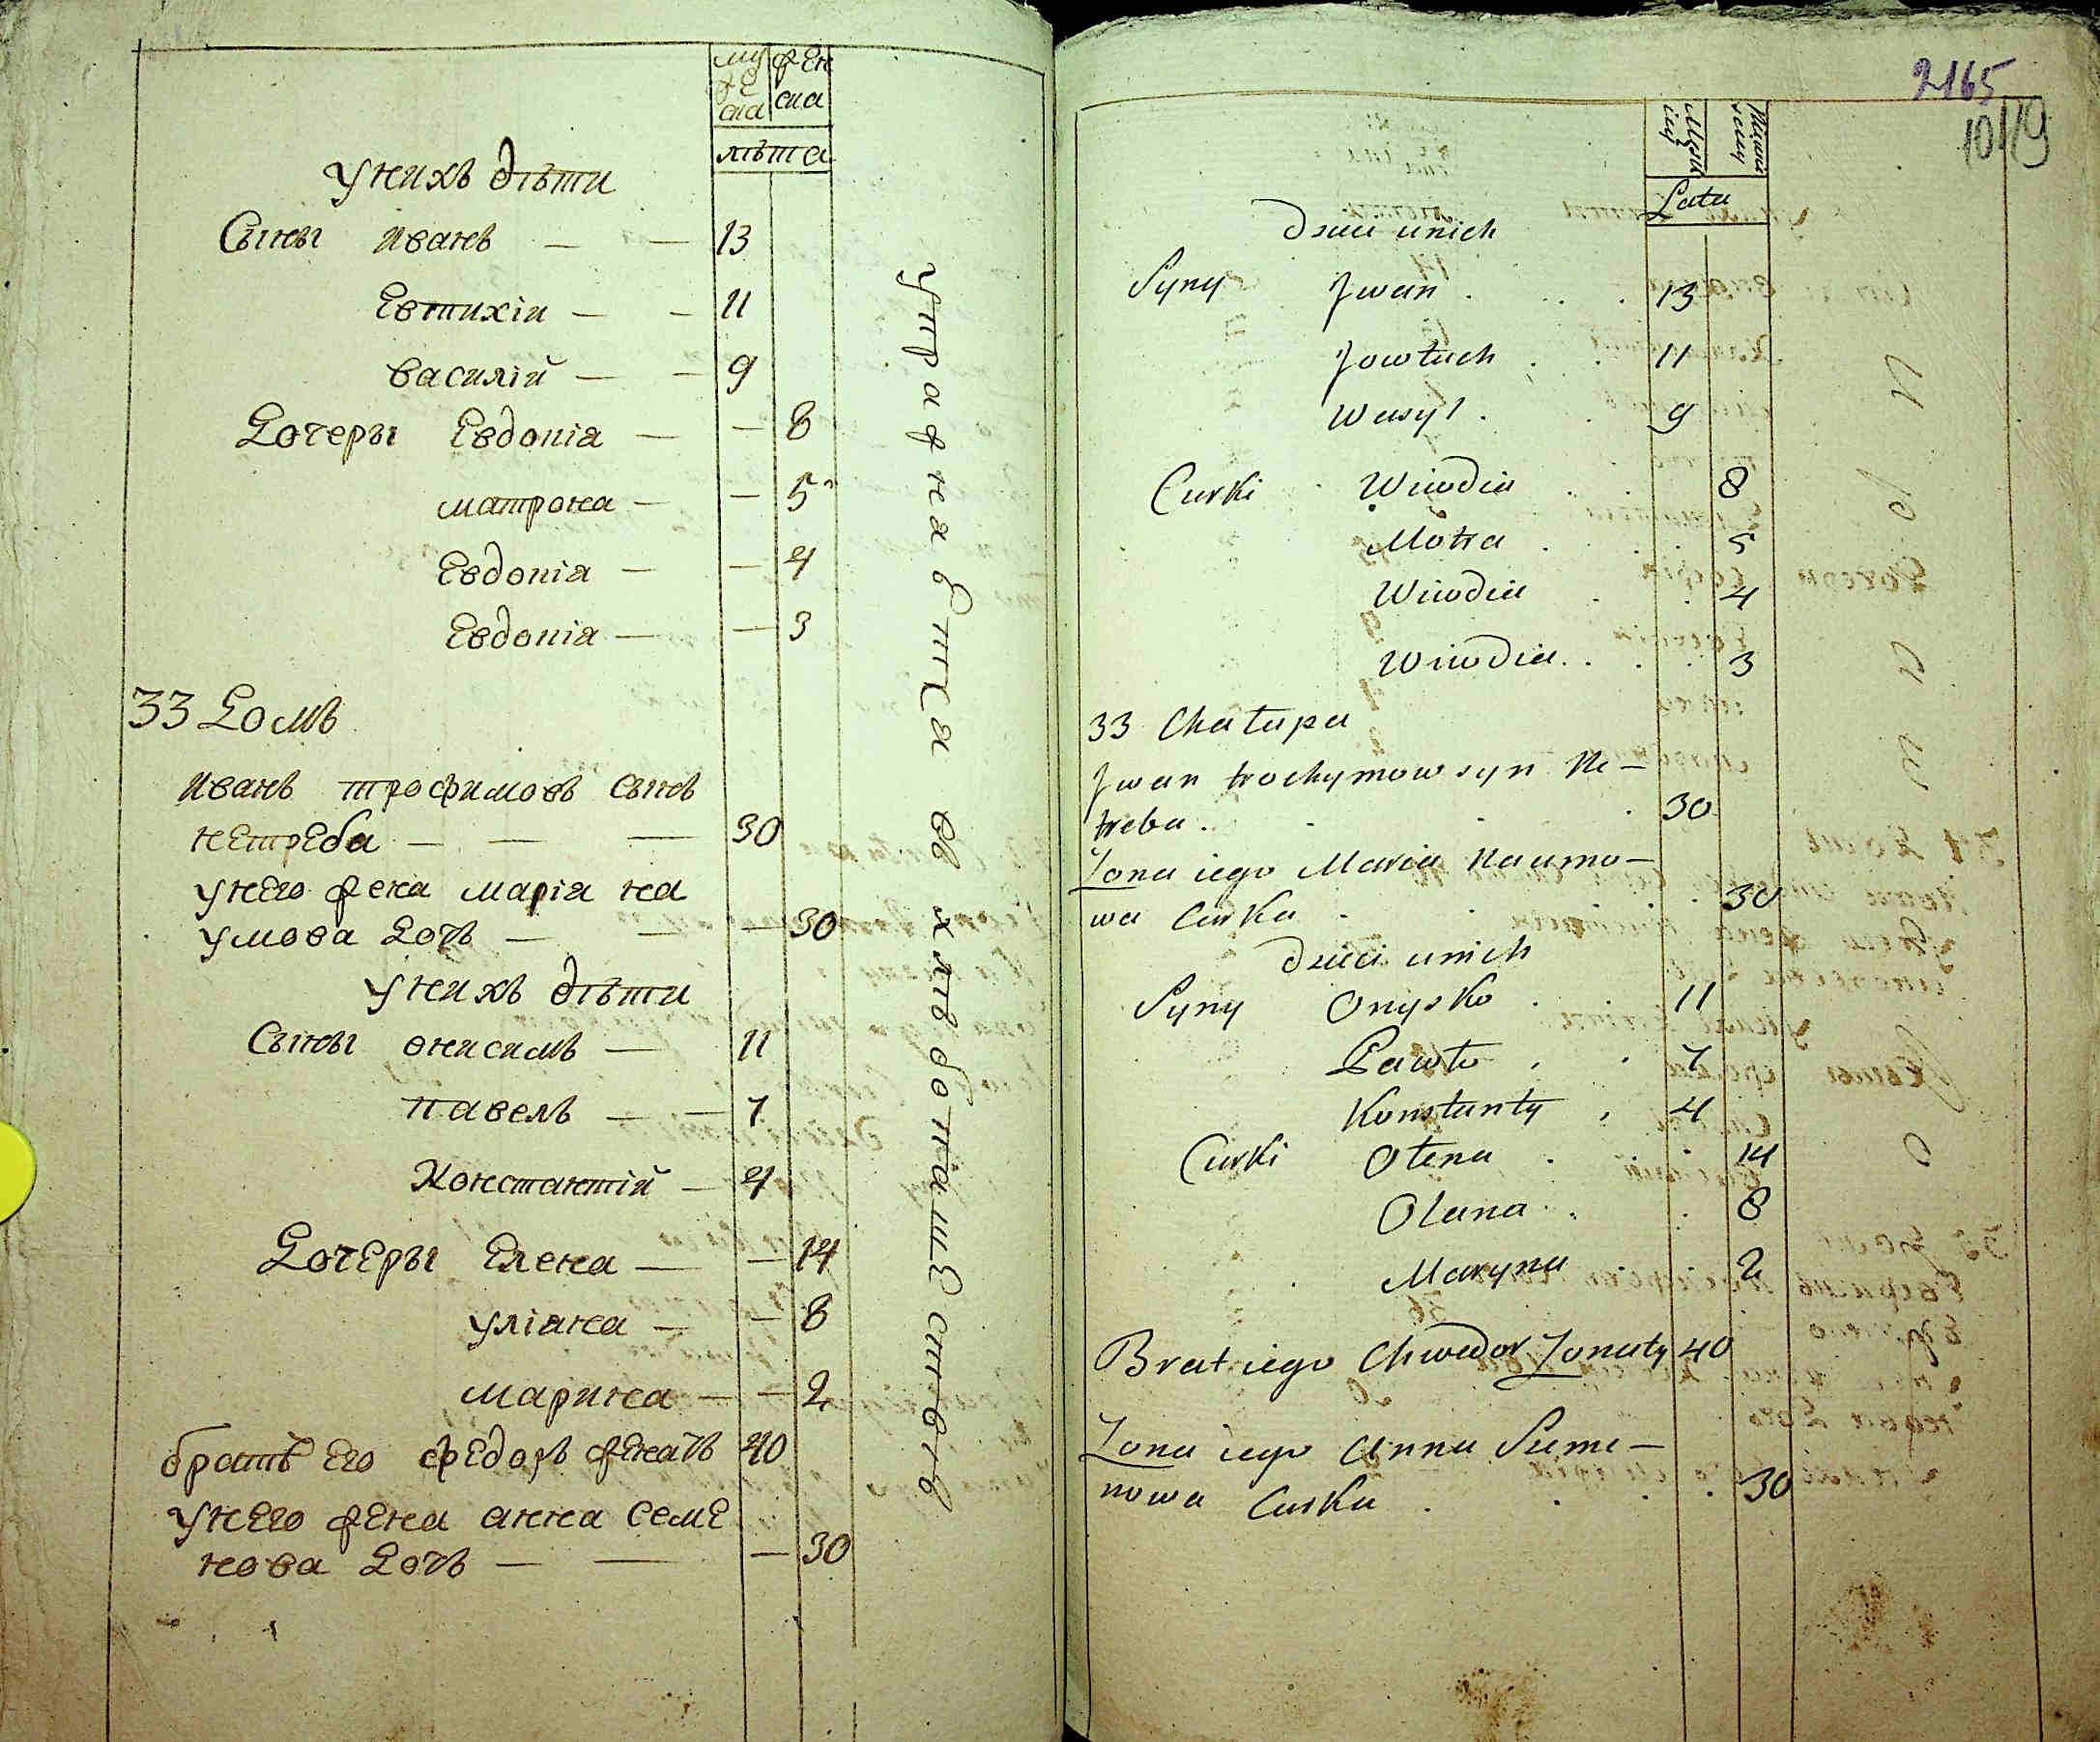 му
же
ска
жен
ска
лѣта
У нихъ дѣти
Сыны Иванъ — — 13
Евтихій — — 11
Василій — — 9
Дочеры Евдокія — — 8
Матрона — — 5
Евдокія — — 4
Евдокія — — 3
33 Домъ
Иванъ Трофимовъ сынъ
Нетреба — — — 30
У него жена Марія На
умова дочь — — — 30
У нихъ дѣти
Сыны Онисимъ — 11
Павелъ — — 7
Константій — 4
Дочеры Елена — — 14
Уліана — — 8
Марина — — 2
братъ его Федоръ женатъ 40
У него жена Анна Семе
нова дочь — — — 30
упражняется въ хлѣбопашествѣ
2165
10 119
Męzki
ey
Latu
Dzieci unich
Syny Jwan . . . 13
Jowtuch . . 11
Wasyl . . 9
Curki Wiwdia . . 8
Motra . . . 5
Wiwdia . . 4
Wiwdia . . . 3
33 Chałupa
Jwan trochymow syn Ne-
treba . . . . 30
Żona iego Maria Naumo-
wa Curka . . . 30
Dzieci unich
Syny Onysko . . 11
Pawło . . 7
Konstanty . 4
Curki Ołena . . . 14
Olana . . 8
Maryna 2
Brat iego Chwedor Żonaty 40
Żona iego Anna Seme-
nowa Curka . . . . 30